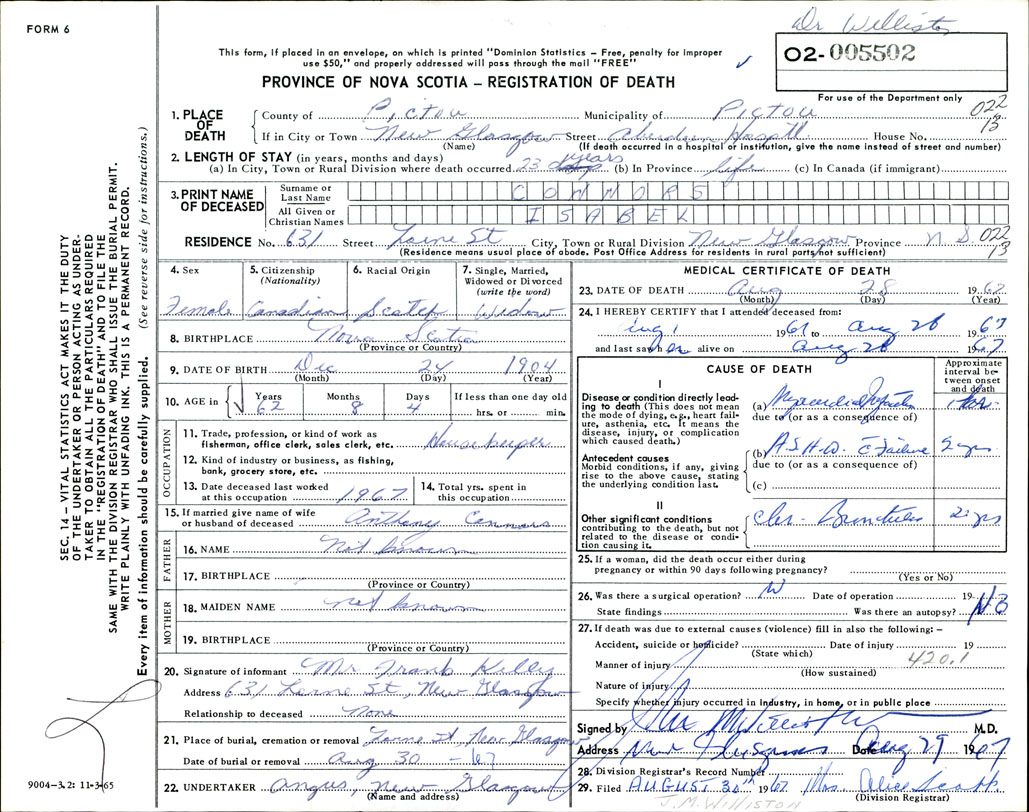 FORM 6
Dr Williston
This form, if placed in an envelope, on which is printed "Dominion Statistics – Free, penalty for improper
use $50," and properly addressed will pass through the mail "FREE"
02-005502
PROVINCE OF NOVA SCOTIA – REGISTRATION OF DEATH
For use of the Department only
022
13
1. PLACE OF DEATH
County of Pictou Municipality of Pictou
If in City or Town New Glasgow Street Aberdeen Hospital House No.
(Name) (If death occurred in a hospital or institution, give the name instead of street and number)
2. LENGTH OF STAY (in years, months and days)
(a) In City, Town or Rural Division where death occurred 23 years (b) In Province life (c) In Canada (if immigrant)
3. PRINT NAME OF DECEASED
Surname or Last Name CONNORS
All Given or Christian Names ISABEL
RESIDENCE No. 631 Street Lorne St City, Town or Rural Division New Glasgow Province N.S. 022
13
(Residence means usual place of abode. Post Office Address for residents in rural parts not sufficient)
4. Sex
Female
5. Citizenship (Nationality)
Canadian
6. Racial Origin
Scotch
7. Single, Married, Widowed or Divorced (write the word)
Widow
8. BIRTHPLACE Nova Scotia
(Province or Country)
9. DATE OF BIRTH Dec 24 1904
(Month) (Day) (Year)
10. AGE in Years 62 Months 8 Days 4 If less than one day old hrs. or min.
OCCUPATION
11. Trade, profession, or kind of work as
fisherman, office clerk, sales clerk, etc. Housekeeper
12. Kind of industry or business, as fishing,
bank, grocery store, etc.
13. Date deceased last worked at this occupation 1967
14. Total yrs. spent in this occupation
15. If married give name of wife
or husband of deceased Anthony Connors
FATHER
16. NAME Not known
17. BIRTHPLACE
(Province or Country)
MOTHER
18. MAIDEN NAME not known
19. BIRTHPLACE
(Province or Country)
20. Signature of informant Mr Frank Kelley
Address 631 Lorne St, New Glasgow
Relationship to deceased None
21. Place of burial, cremation or removal Lorne St, New Glasgow
Date of burial or removal Aug 30 – 67
22. UNDERTAKER Angus, New Glasgow
(Name and address)
MEDICAL CERTIFICATE OF DEATH
23. DATE OF DEATH Aug 28 1967
(Month) (Day) (Year)
24. I HEREBY CERTIFY that I attended deceased from:
1967 to Aug 28 1967
and last saw her alive on Aug 28 1967
CAUSE OF DEATH
Approximate interval between onset and death
I
Disease or condition directly leading to death (This does not mean the mode of dying, e.g., heart failure, asthenia, etc. It means the disease, injury, or complication which caused death.)
(a) Myocardial Infarction
due to (or as a consequence of)
Antecedent causes
Morbid conditions, if any, giving rise to the above cause, stating the underlying condition last.
(b) A.S.H.D. c Failure 2 yrs
due to (or as a consequence of)
(c)
II
Other significant conditions
contributing to the death, but not related to the disease or condition causing it.
Chr. Bronchitis 2 yrs
25. If a woman, did the death occur either during
pregnancy or within 90 days following pregnancy?
(Yes or No)
26. Was there a surgical operation? Date of operation 19
State findings Was there an autopsy? No
27. If death was due to external causes (violence) fill in also the following: –
Accident, suicide or homicide? Date of injury 19
(State which)
420.1
Manner of injury
(How sustained)
Nature of injury
Specify whether injury occurred in industry, in home, or in public place
Signed by M.D.
Address New Glasgow Date Aug 29 1967
28. Division Registrar's Record Number
29. Filed AUGUST 30th 1967 Mrs Alice Scott
(Division Registrar)
J.M. WILLISTON
SEC. 14 – VITAL STATISTICS ACT MAKES IT THE DUTY
OF THE UNDERTAKER OR PERSON ACTING AS UNDER-
TAKER TO OBTAIN ALL THE PARTICULARS REQUIRED
IN THE "REGISTRATION OF DEATH" AND TO FILE THE
SAME WITH THE DIVISION REGISTRAR WHO SHALL ISSUE THE BURIAL PERMIT.
WRITE PLAINLY WITH UNFADING INK. THIS IS A PERMANENT RECORD.
Every item of information should be carefully supplied. (See reverse side for instructions.)
9004-3.2: 11-3-65